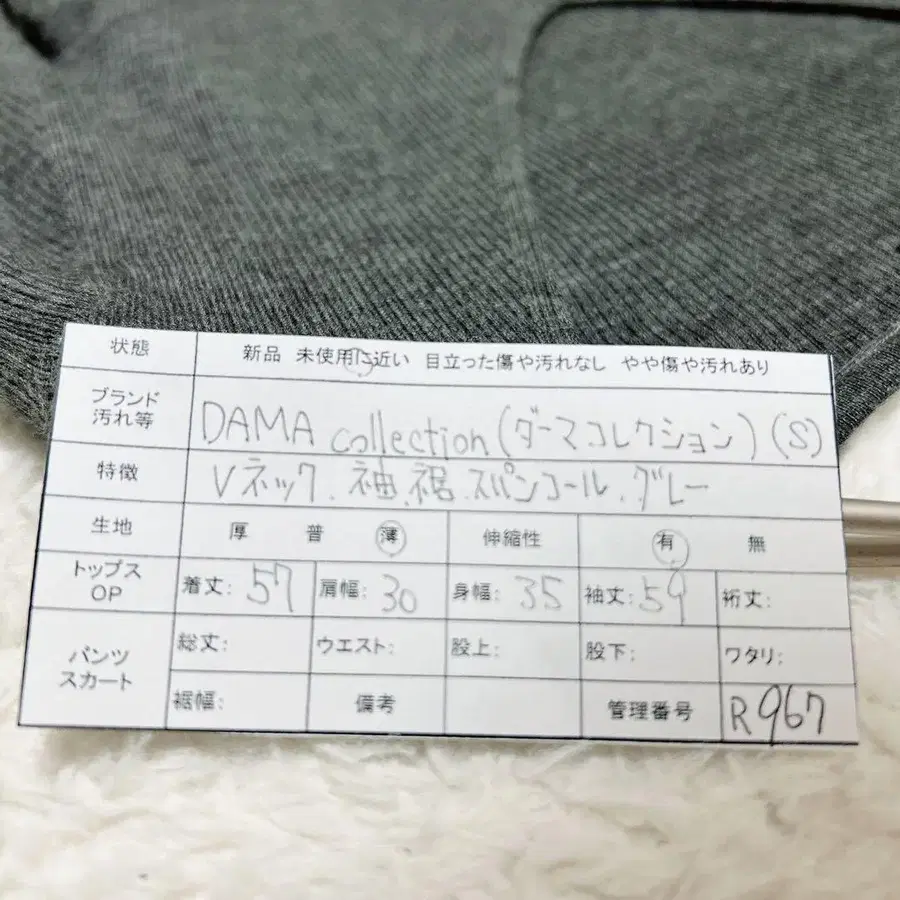 状態 新品 未使用に近い 目立った傷や汚れなし やや傷や汚れあり
ブランド
汚れ等 DAMA collection(ダーマコレクション)(S)
特徴 Vネック.袖.裾.スパンコール.グレー
生地 厚 普 薄 伸縮性 有 無
トップス
OP 着丈: 57 肩幅: 30 身幅: 35 袖丈: 59 裄丈:
パンツ
スカート 総丈: ウエスト: 股上: 股下: ワタリ:
裾幅: 備考 管理番号 R967